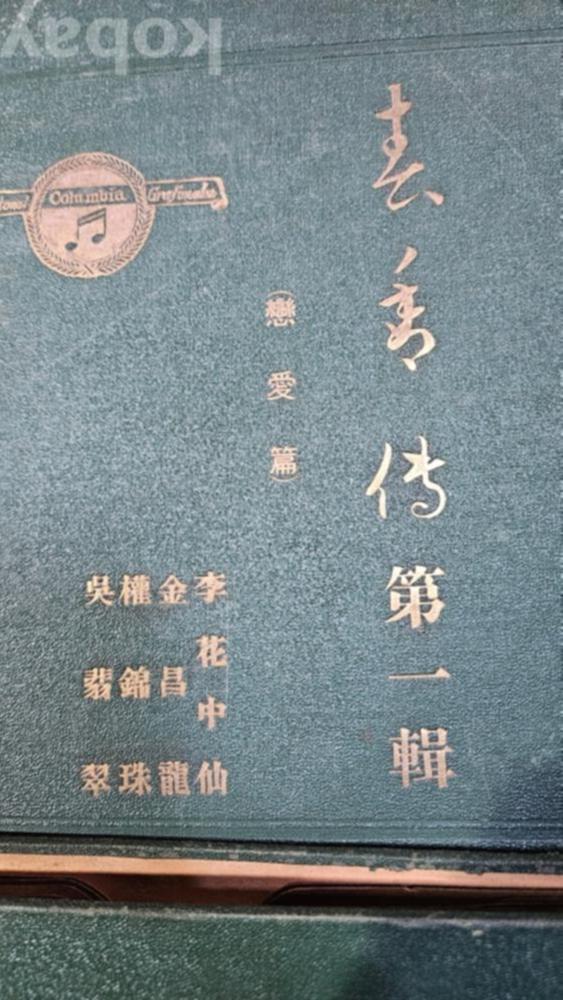 kobay
春香传第一輯
(戀愛篇)
李花中仙
金昌龍
權錦珠
吳翡翠
Columbia